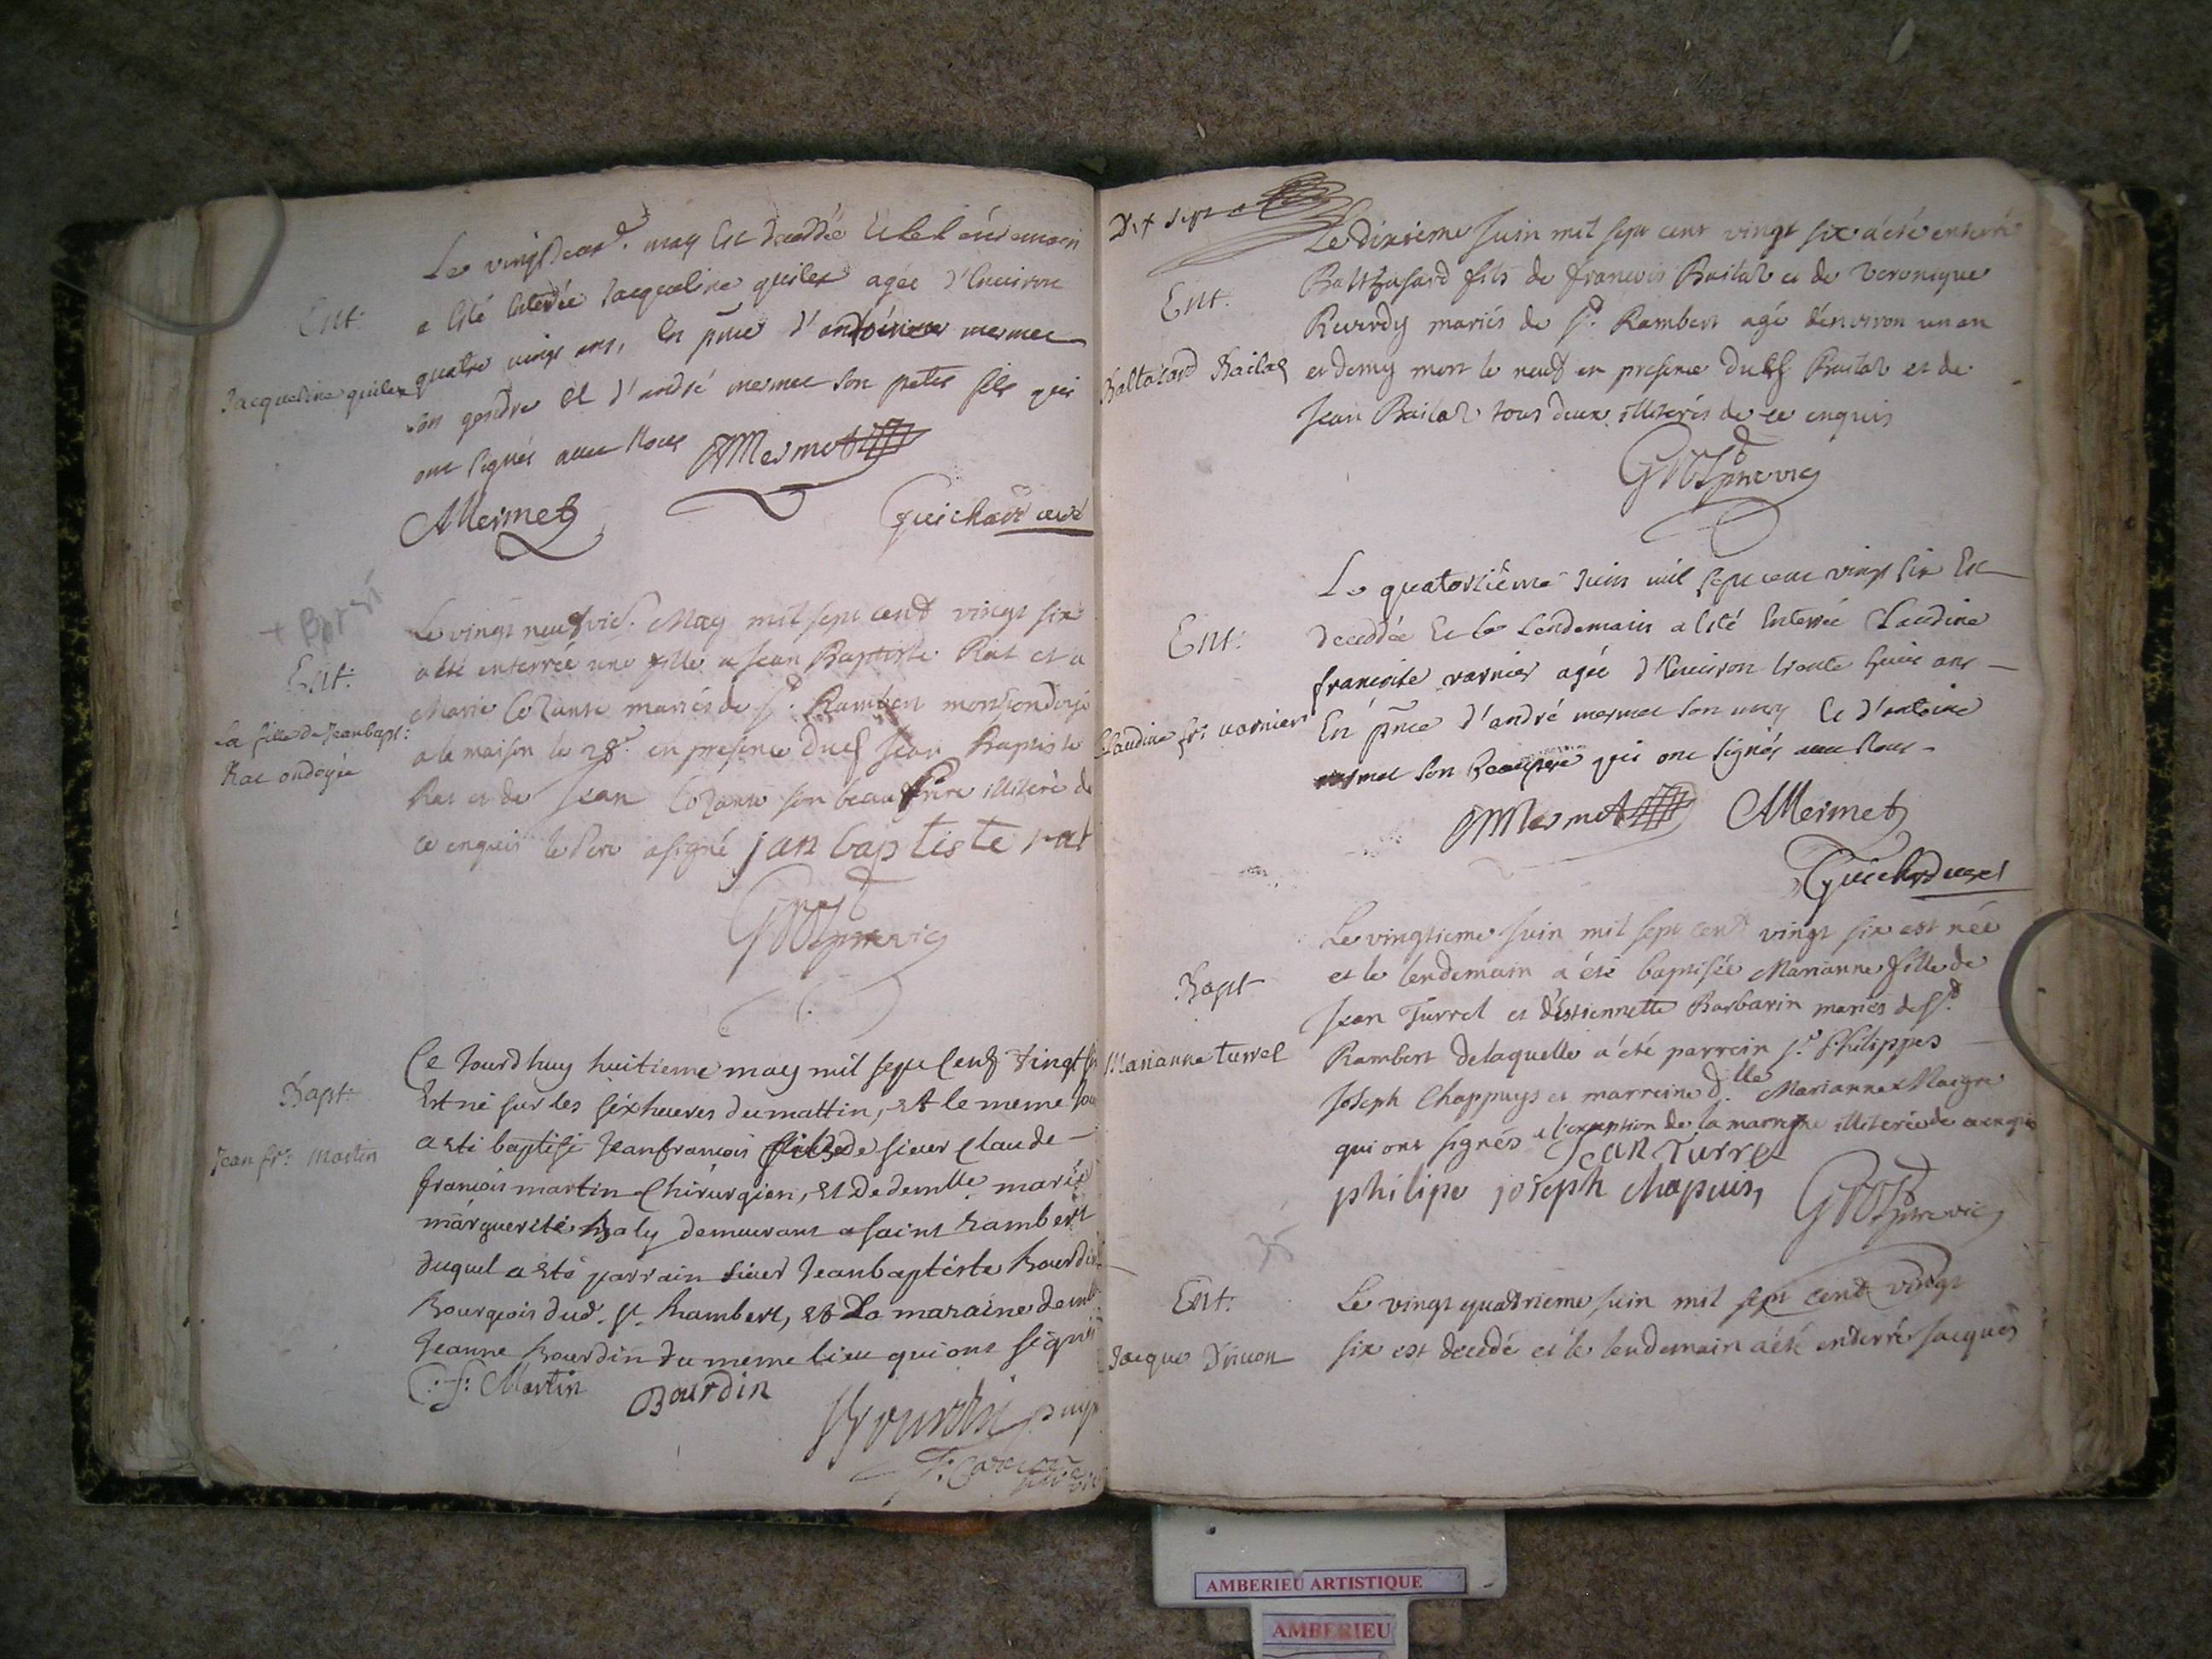 Ent.
Jacqueline quilex
Le vingt may est decedée et le lendemain
a esté enterrée Jacqueline quilex agée d'environ
quatre vingt ans, en pnce d'antoine mermet
son gendre et d'andré mermet son petit fils qui
ont signés avec nous
AMermet
Guichard curé
Ent:
La fille de Jean bapt:
Rat ondoyée
Le vingt neufvie. May mil sept cent vingt six
a été enterrée une fille a Jean Baptiste Rat et a
Marie mariés de St. Rambert
a la maison le 28e. en presence dud Jean Baptiste
Rat et de Jean son beau frère illiteré de
ce enquis le Pere a signé jan baptiste rat
Bapt:
Jean frs: Martin
Ce Jourdhuy huitieme may mil sept cent vingt six
Est né sur les six heures du mattin, et le meme Jou
a esté baptisé Jean francois fils de sieur Claude
francois martin Chirurgien, et de demlle marie
marguerite Baly demeurant a saint Rambert
duquel a esté parrain sieur Jean baptiste Bourdin
Bourgeois dud. St. Rambert, et La maraine demlle
Jeanne Bourdin du meme lieu qui ont signé
C: f: Martin Bourdin
Dix sept
Ent.
Baltazard Bailat
Le dixieme Juin mil sept cent vingt six a été enterré
Balthasard fils de francois Bailat et de Veronique
Reverdy mariés de St. Rambert agé d'environ un an
et demy mort le neuf en presence dud Bailat et de
Jean Bailat tous deux illiterés de ce enquis
Ent:
Claudine fr: varnier
Le quatorzième Juin mil sept cent vingt six Est
decedée Et le Lendemain a Esté Enterrée Claudine
francoise varnier agée d'Environ trente huit ans
En pnce d'andré mermet son mary Et d'antoine
mermet son Beaupere qui ont signés avec Nous
AMermet
Bapt
Marianne turrel
Le vingtieme Juin mil sept cent vingt six est née
et le lendemain a été baptisée Marianne fille de
Jean Turrel et d'éstiennette Barbarin mariés de St.
Rambert de laquelle a été parrein sr. Philippes
Joseph Chappuys et marreine dlle. Marianne
qui ont signés a l'exception de la marreine illiterée de ce enquis
Jean Turrel
philipe joseph chapuis
35
Ent.
Le vingt quatrieme Juin mil sept cent vingt
six est decedé et le lendemain a été enterré Jacques
AMBERIEU ARTISTIQUE
AMBERIEU